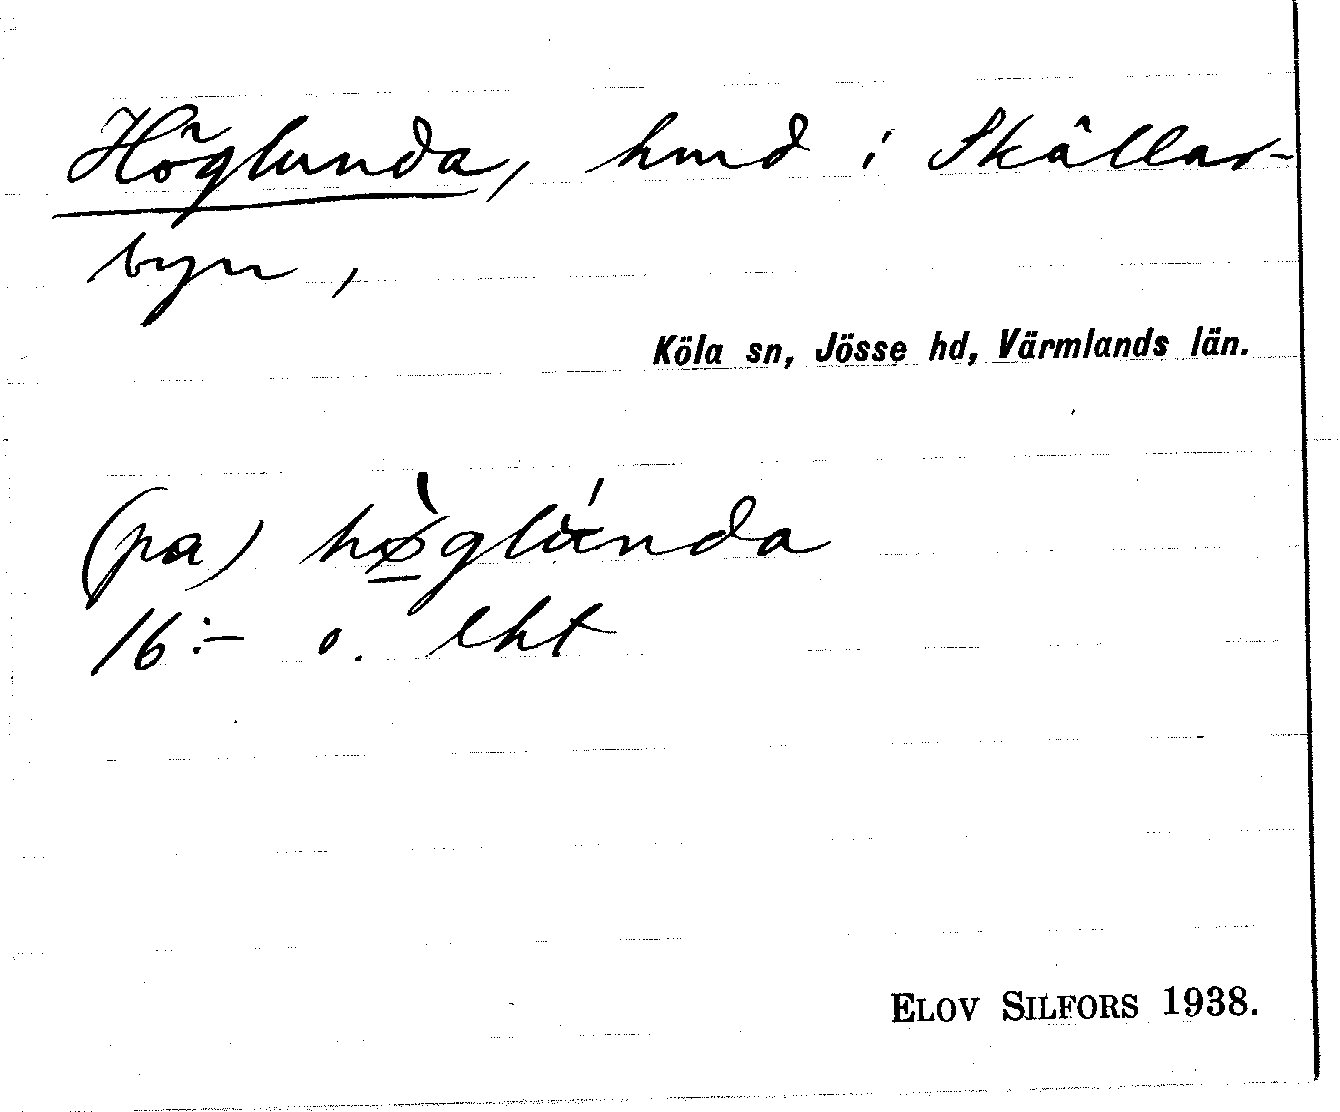 Höglunda, hmd i Skållar-
byn,
Köla sn, Jösse hd, Värmlands län.
(pa) hø̱̀glúnda
16:- o. lht
ELOV SILFORS 1938.